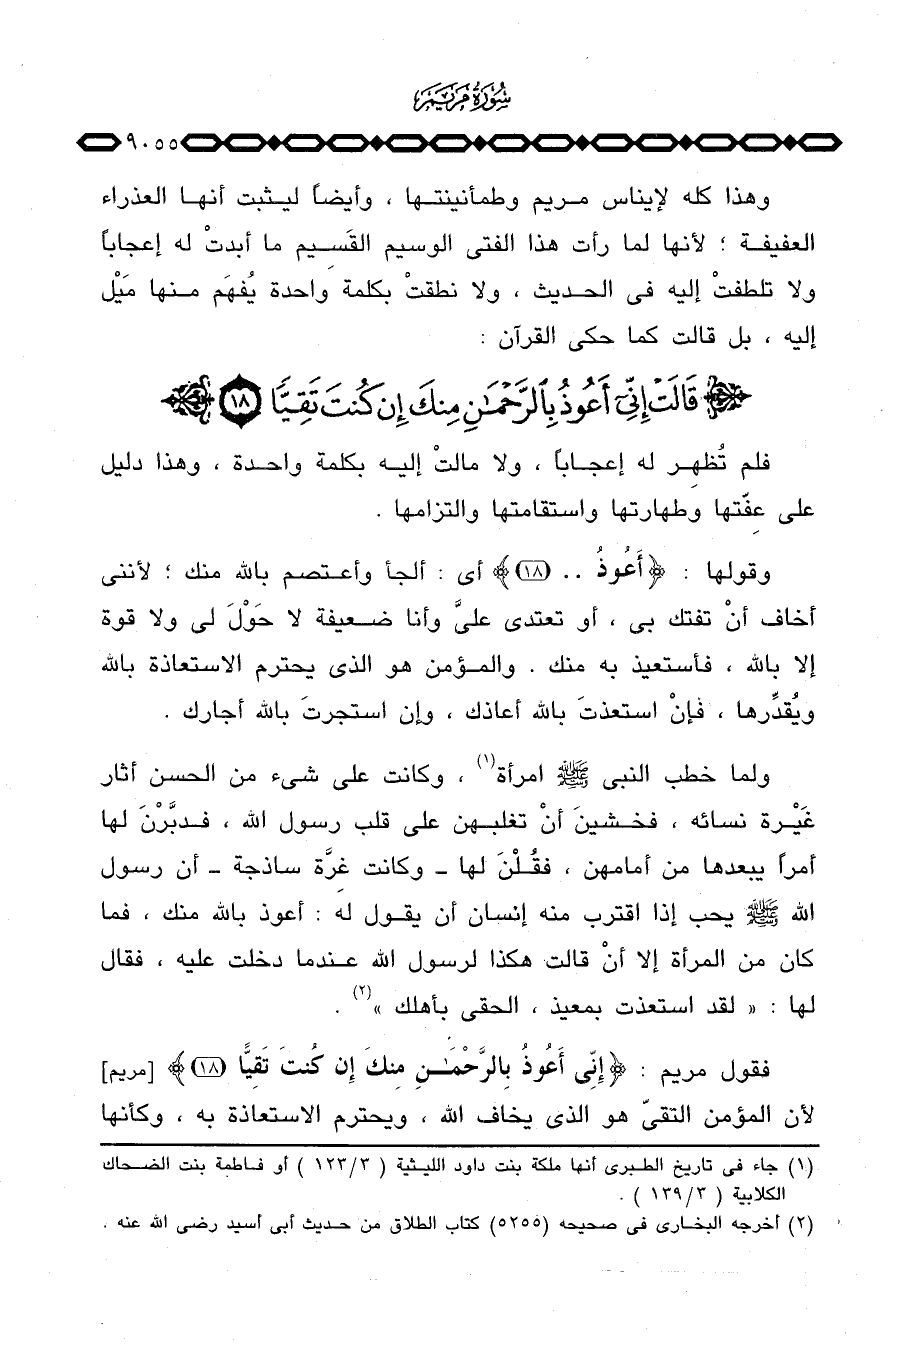 سُورَةُ مَرْيَمَ
٩٠٥٥
وهذا كله لإيناس مريم وطمأنينتها ، وأيضاً ليثبت أنها العذراء
العفيفة ؛ لأنها لما رأت هذا الفتى الوسيم القَسِيم ما أبدتْ له إعجاباً
ولا تلطفتْ إليه فى الحديث ، ولا نطقتْ بكلمة واحدة يُفهَم منها مَيْل
إليه ، بل قالت كما حكى القرآن :
قَالَتْ إِنِّىٓ أَعُوذُ بِٱلرَّحْمَـٰنِ مِنكَ إِن كُنتَ تَقِيًّا ١٨
فلم تُظهِر له إعجاباً ، ولا مالتْ إليه بكلمة واحدة ، وهذا دليل
على عِفّتها وطهارتها واستقامتها والتزامها .
وقولها : ﴿أَعُوذُ .. (١٨)﴾ أى : ألجأ وأعتصم بالله منك ؛ لأننى
أخاف أنْ تفتك بى ، أو تعتدى علىَّ وأنا ضعيفة لا حَوْلَ لى ولا قوة
إلا بالله ، فأستعيذ به منك . والمؤمن هو الذى يحترم الاستعاذة بالله
ويُقدِّرها ، فإنْ استعذتَ بالله أعاذك ، وإن استجرتَ بالله أجارك .
ولما خطب النبى ﷺ امرأة(١) ، وكانت على شىء من الحسن أثار
غَيْرة نسائه ، فخشينَ أنْ تغلبهن على قلب رسول الله ، فدبَّرْنَ لها
أمراً يبعدها من أمامهن ، فقُلْنَ لها ـ وكانت غِرَّة ساذجة ـ أن رسول
الله ﷺ يحب إذا اقترب منه إنسان أن يقول له : أعوذ بالله منك ، فما
كان من المرأة إلا أنْ قالت هكذا لرسول الله عندما دخلت عليه ، فقال
لها : « لقد استعذت بمعيذ ، الحقى بأهلك »(٢) .
فقول مريم : ﴿إِنِّى أَعُوذُ بِالرَّحْمَـٰنِ مِنكَ إِن كُنتَ تَقِيًّا (١٨)﴾ [مريم]
لأن المؤمن التقىّ هو الذى يخاف الله ، ويحترم الاستعاذة به ، وكأنها
(١) جاء فى تاريخ الطبرى أنها ملكة بنت داود الليثية ( ١٢٣/٣ ) أو فاطمة بنت الضحاك
الكلابية ( ١٣٩/٣ ) .
(٢) أخرجه البخارى فى صحيحه (٥٢٥٥) كتاب الطلاق من حديث أبى أسيد رضى الله عنه .